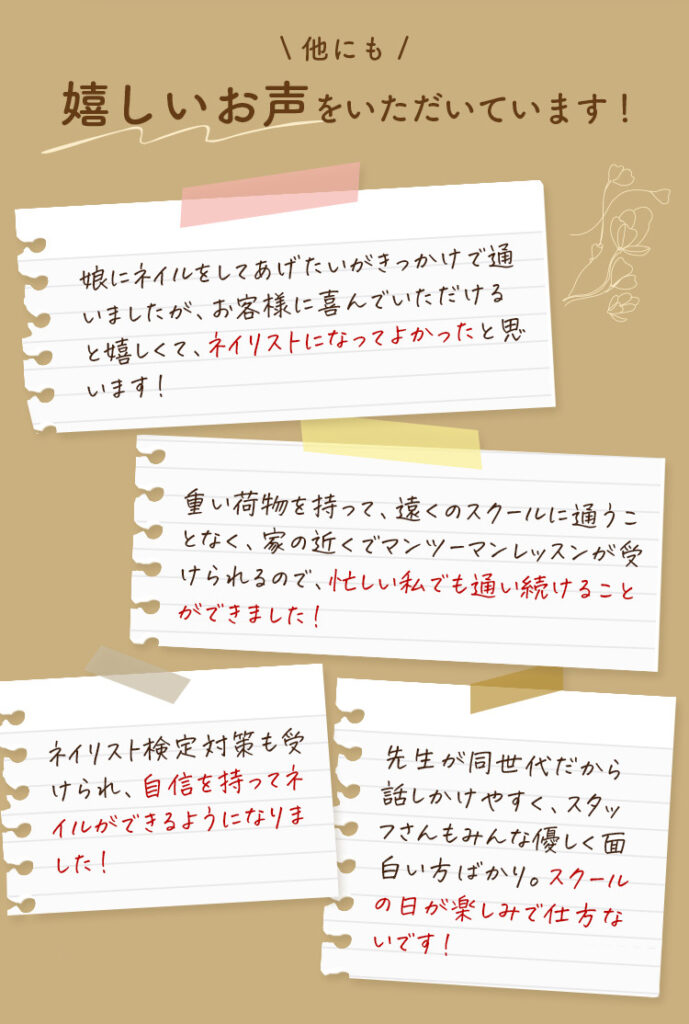 \ 他にも /
嬉しいお声をいただいています！
娘にネイルをしてあげたいがきっかけで通
いましたが、お客様に喜んでいただける
と嬉しくて、ネイリストになってよかったと思
います！
重い荷物を持って、遠くのスクールに通うこ
となく、家の近くでマンツーマンレッスンが受
けられるので、忙しい私でも通い続けること
ができました！
ネイリスト検定対策も受
けられ、自信を持ってネ
イルができるようになりま
した！
先生が同世代だから
話しかけやすく、スタッ
フさんもみんな優しく面
白い方ばかり。スクール
の日が楽しみで仕方な
いです！